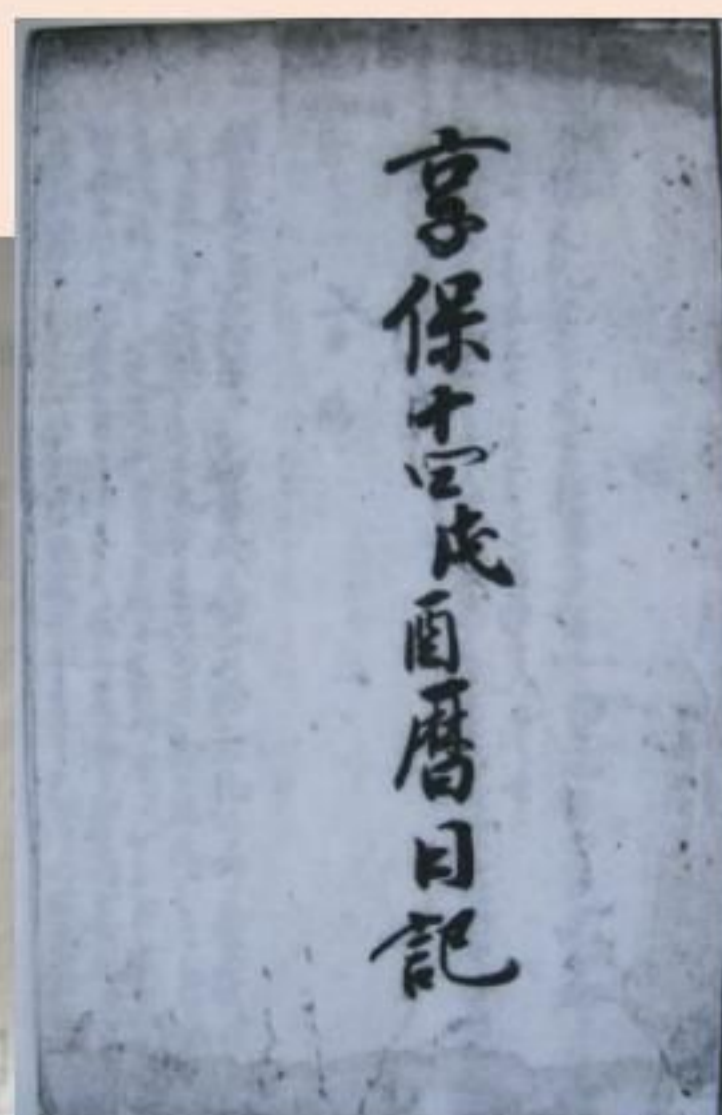 享保十四歳酉暦日記